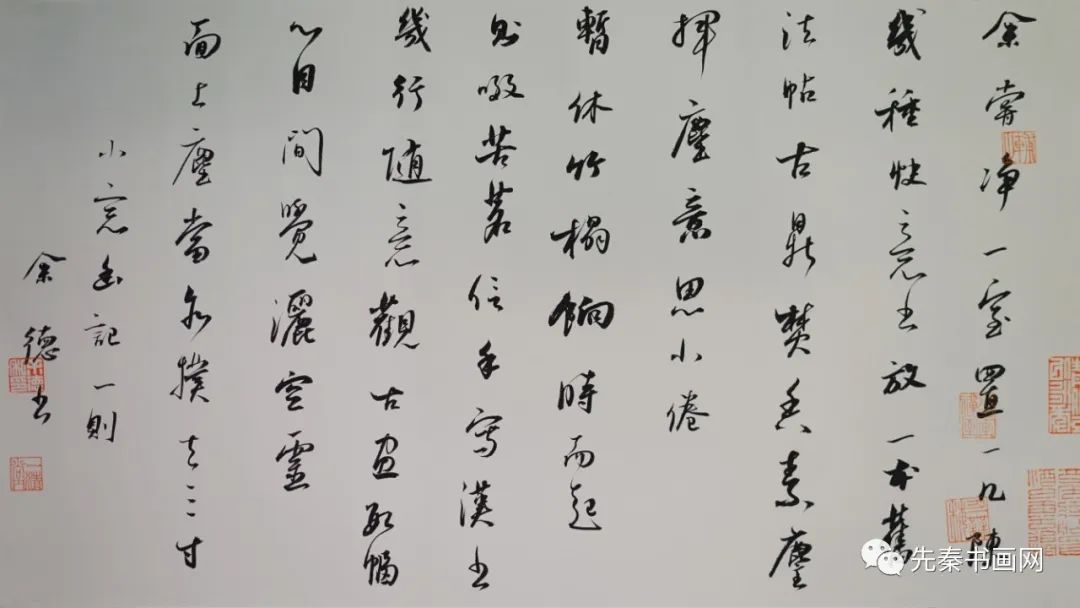 余嘗净一室置一几陳
幾種快意书放一本舊
法帖古鼎焚香素麈
揮塵意思小倦
暫休竹榻餉時而起
则啜苦茗信手寫漢书
幾行随意觀古画数幅
心目間覺灑空靈
面上塵當亦撲去三寸
小窓幽記一則
余德书
先秦书画网